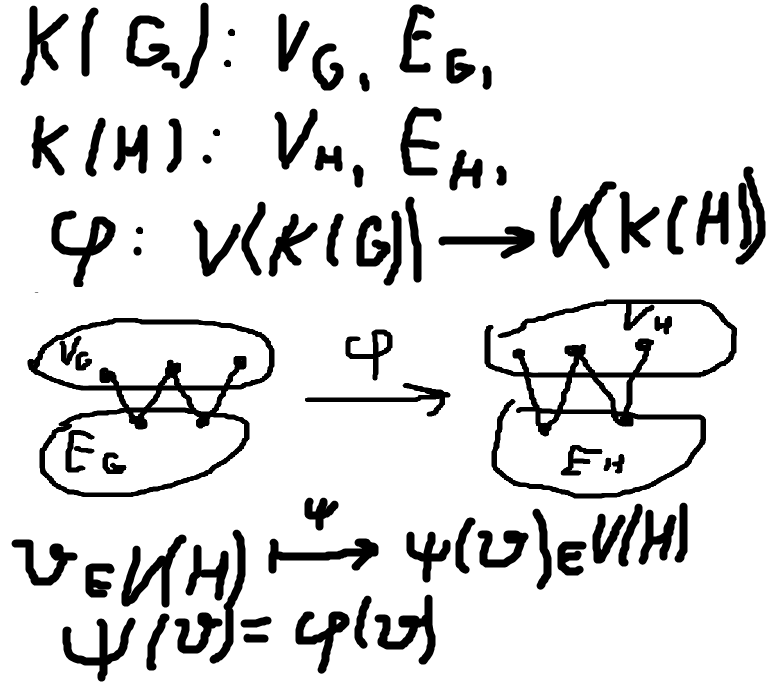 K(G): V_G, E_G,
K(H): V_H, E_H,
φ: V(K(G)) → V(K(H))
V_G φ V_H
E_G E_H
v ∈ V(H) ↦^ψ ψ(v) ∈ V(H)
ψ(v) = φ(v)